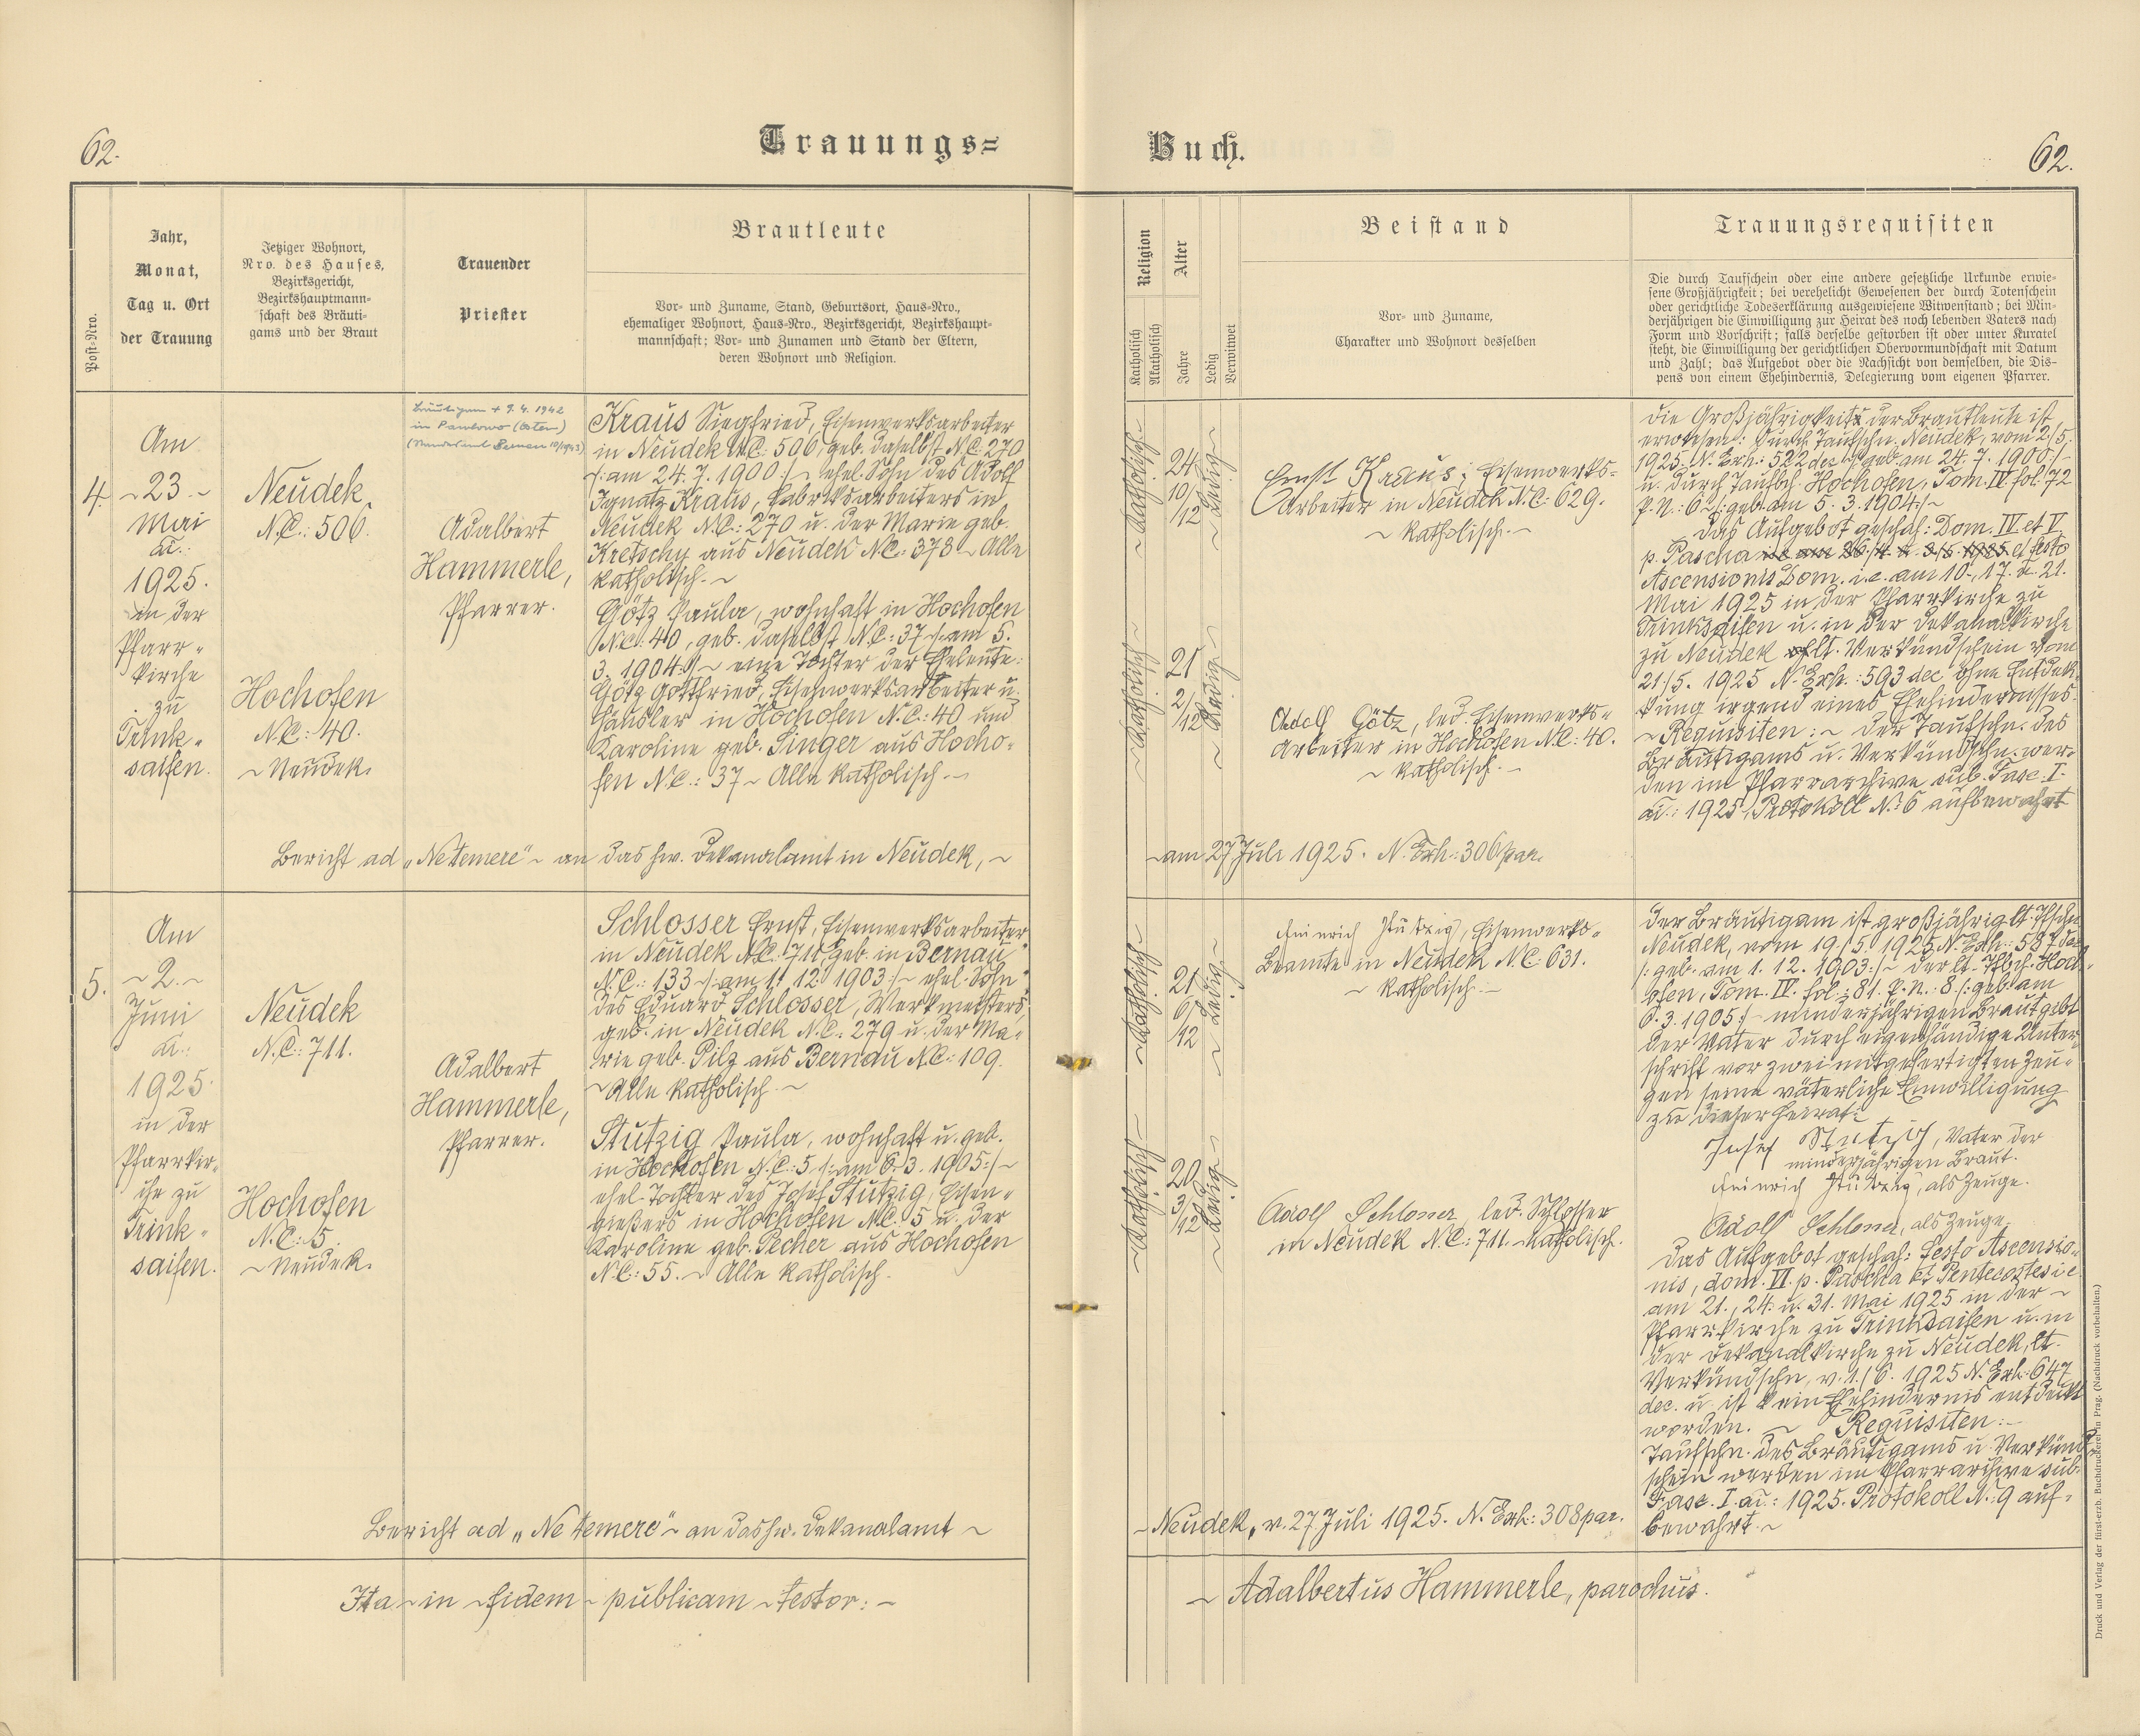 62.
Trauungs=
Buch.
62.
Post-Nro.
Jahr,
Monat,
Tag u. Ort
der Trauung
Jetziger Wohnort,
Nro. des Hauses,
Bezirksgericht,
Bezirkshauptmann-
schaft des Bräuti-
gams und der Braut
Trauender
Priester
Brautleute
Vor- und Zuname, Stand, Geburtsort, Haus-Nro.,
ehemaliger Wohnort, Haus-Nro., Bezirksgericht, Bezirkshaupt-
mannschaft; Vor- und Zunamen und Stand der Eltern,
deren Wohnort und Religion.
Religion
Katholisch
Akatholisch
Alter
Jahre
Ledig
Verwitwet
Beistand
Vor- und Zuname,
Charakter und Wohnort desselben
Trauungsrequisiten
Die durch Taufschein oder eine andere gesetzliche Urkunde erwie-
sene Großjährigkeit; bei verehelicht Gewesenen der durch Totenschein
oder gerichtliche Todeserklärung ausgewiesene Witwenstand; bei Min-
derjährigen die Einwilligung zur Heirat des noch lebenden Vaters nach
Form und Vorschrift; falls derselbe gestorben ist oder unter Kuratel
steht, die Einwilligung der gerichtlichen Obervormundschaft mit Datum
und Zahl; das Aufgebot oder die Nachsicht von demselben, die Dis-
pens von einem Ehehindernis, Delegierung vom eigenen Pfarrer.
4.
Am
~ 23 ~
Mai
a.:
1925.
in der
Pfarr-
kirche
zu
Trink-
saifen.
Neudek
N.C.: 506.
Hochofen
N.C.: 40.
~ Neudek.
Bräutigam + 9. 4. 1942
in (Osten)
Adalbert
Hammerle,
Pfarrer.
Kraus Siegfried, Eisenwerksarbeiter
in Neudek N.C.: 506, geb. daselbst N.C. 270
/: am 24. 7. 1900 :/ ~ ehel. Sohn des Adolf
Ignatz Kraus, Fabriksarbeiters in
Neudek N.C.: 270 u. der Marie geb.
Kretschy aus Neudek N.C.: 373 ~ Alle
katholisch. ~
Götz Paula, wohnhaft in Hochofen
N.C. 40, geb. daselbst N.C.: 37 /: am 5.
3. 1904 :/ ~ eine Tochter der Eheleute:
Götz Gottfried, Eisenwerksarbeiter u.
Häusler in Hochofen N.C.: 40 und
Karoline geb. Singer aus Hocho-
fen N.C.: 37 ~ Alle katholisch. ~
~ Katholisch ~
24
10/12
~ Ledig ~
~ Katholisch ~
21
2/12
~ Ledig ~
Ernst Kraus, Eisenwerks-
Arbeiter in Neudek N.C.: 629.
~ katholisch. ~
Adolf Götz, led. Eisenwerks-
arbeiter in Hochofen N.C.: 40.
~ katholisch. ~
Die Großjährigkeit der Brautleute ist
erwiesen: Durch Taufschn. Neudek, vom 2./5.
1925 N. Exh.: 522 dec /: geb. am 24. 7. 1900 :/
u. durch Taufbch. Hochofen, Tom. IV fol. 72
p. N.: 6 /: geb. am 5. 3. 1904 :/ ~
Das Aufgebot geschah: Dom. IV et V
p. Pascha et festo
Ascensionis Dom. i. e. am 10., 17. u. 21.
Mai 1925 in der Pfarrkirche zu
Trinksaifen u. in der Dekanalkirche
zu Neudek lt. Verkündschein vom
21./5. 1925 N. Exh.: 593 dec ohne Entdek-
kung irgend eines Ehehindernisses.
~ Requisiten: ~ Der Taufschn. des
Bräutigams u. Verkündschn. wer-
den im Pfarrarchive sub. Fasc. I.
a.: 1925, Protokoll N.: 6 aufbewahrt
Bericht ad „Ne temere" ~ an das hw. Dekanalamt in Neudek, ~
~ am 27 Juli 1925. N. Exh.: 306 par.
5.
Am
~ 2. ~
Juni
a.:
1925.
in der
Pfarrkir-
che zu
Trink-
saifen.
Neudek
N.C.: 711.
Hochofen
N.C.: 5.
~ Neudek.
Adalbert
Hammerle,
Pfarrer.
Schlosser Ernst, Eisenwerksarbeiter
in Neudek N.C.: 711, geb. in Bernau
N.C.: 133 /: am 1. 12. 1903 :/ ~ ehel. Sohn
des Eduard Schlosser, Werkmeisters,
geb. in Neudek N.C.: 279 u. der Ma-
rie geb. Pilz aus Bernau N.C.: 109.
~ Alle katholisch. ~
Stutzig Paula, wohnhaft u. geb.
in Hochofen N.C.: 5 /: am 6. 3. 1905 :/ ~
ehel. Tochter des Josef Stutzig, Eisen-
gießers in Hochofen N.C.: 5 u. der
Karoline geb. Pecher aus Hochofen
N.C.: 55. ~ Alle katholisch.
~ Katholisch ~
21
6/12
~ Ledig ~
~ Katholisch ~
20
3/12
~ Ledig ~
Heinrich Stutzig, Eisenwerks-
Beamte in Neudek N.C. 631.
~ katholisch. ~
Adolf Schlosser, led. Schlosser
in Neudek N.C.: 711. ~ katholisch.
Der Bräutigam ist großjährig lt. Tfschn.
Neudek, vom 19./5. 1925 N. Exh.: 587 dec
/: geb. am 1. 12. 1903 :/ ~ Der lt. Tfbch. Hoch-
ofen, Tom. IV. fol.: 81. p. n.: 8 /: geb. am
6. 3. 1905 :/ ~ minderjährigen Braut gibt
der Vater durch eigenhändige Unter-
schrift vor zwei mitgefertigten Zeu-
gen seine väterliche Einwilligung
zu dieser Heirat:
Josef Stutzig, Vater der
minderjährigen Braut.
Heinrich Stutzig, als Zeuge.
Adolf Schlosser, als Zeuge.
Das Aufgebot geschah: Festo Ascensio-
nis, dom. VI. p. Pascha et Pentecostes i. e.
am 21., 24. u. 31. Mai 1925 in der ~
Pfarrkirche zu Trinksaifen u. in
der Dekanalkirche zu Neudek, lt.
Verkündschn. v. 1./6. 1925 N. Exh. 647
dec. u. ist kein Ehehindernis entdeckt
worden. ~ Requisiten: ~
Taufschn. des Bräutigams u. Verkünd-
schein werden im Pfarrarchive sub.
Fasc. I. a.: 1925. Protokoll N.: 9 auf-
bewahrt. ~
Bericht ad „Ne temere" ~ an das hw. Dekanalamt ~
~ Neudek, v. 27 Juli 1925. N. Exh.: 308 par.
Ita ~ in ~ fidem ~ publicam ~ testor: ~
~ Adalbertus Hammerle, parochus.
Druck und Verlag der fürst-erzb. Buchdruckerei in Prag. (Nachdruck vorbehalten.)